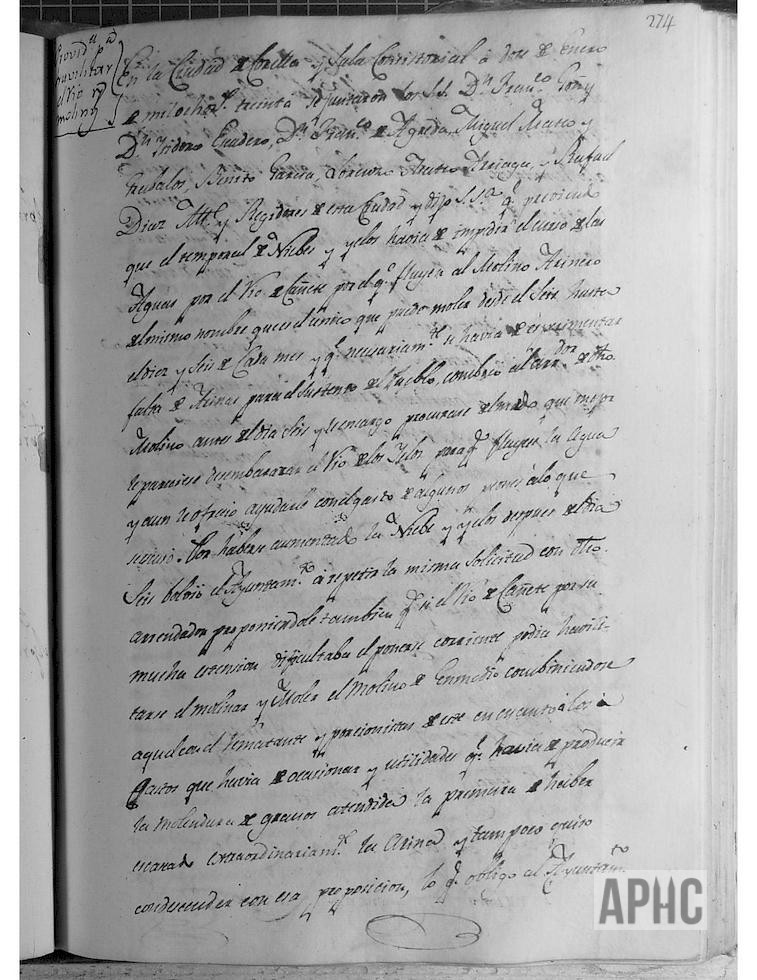 274
Provid.ª p.ª
havilitar
el Rio y
molinos
En la Ciudad de Corella y Sala Consistorial á doze de Enero
de mil ochoz.s treinta se juntaron los S.S. D.n Fran.co Goñy
D.n Isidoro Escudero, D.n Fran.co de Agreda, Miguel Mateo y
Ceballos, Benito Garcia, Lorenzo Mateo Arriaga, y Rafael
Diaz Alt.e y Regidores de esta Ciudad y dijo S.S.ª q.e previendo
que el temporal de Niebes y yelos havia de impedir el curso de las
Aguas por el Rio de Cañete por el q.e fluyen al Molino Arinero
del mismo nombre que es el unico que puede moler desde el Seis hasta
el diez y Seis de Cada mes y q.e necesariam.te se havia de experimentar
falta de Arinas para el Sustento del Pueblo, combocó al arr.dor de dho.
Molino antes del dia Seis y le encargo procurase del modo que mejor
le pareciese desembarazar el Rio de los Yelos para q.e fluyese la Agua
y aun le ofreció ayudarle con el gasto de algunos peones á lo que
se Por haberse aumentado la Niebe y yelos despues del dia
Seis bolvió el Ayuntam.to á repetir la misma solicitud con dho.
arrendador proponiendole tambien q.e si el Rio de Cañete por su
mucha estension dificultaba el ponerse corriente podia havili-
tarse el molinar y Moler el Molino de Enmedio combiniendose
aquel con el rematante y porcionistas de este en cuanto á los
Gastos que havia de ocasionar y utilidades q.e havia de producir
la molendura de granos atendida la premura de haber
escasead extraordinariam.te la Arina y tampoco quiso
condescender con esa proposicion, lo q.e obligo al Ayuntam.to
APHC